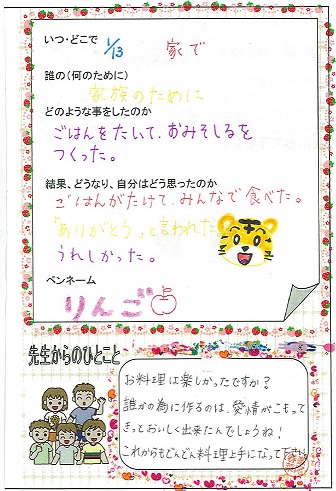 いつ・どこで
1/13 家で
誰の(何のために)
家族のために
どのような事をしたのか
ごはんをたいて、おみそしるを
つくった。
結果、どうなり、自分はどう思ったのか
ごはんがたけて、みんなで食べた。
「ありがとう」と言われた
うれしかった。
ペンネーム
りんご
先生からのひとこと
お料理は楽しかったですか?
誰かの為に作るのは、愛情がこもって
きっとおいしく出来たんでしょうね!
これからもどんどん料理上手になって下さい